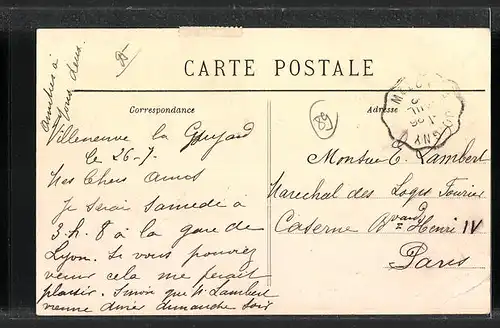 Amitiés à
tous deux.
CARTE POSTALE
Correspondance
Adresse
58
Villeneuve la Guyard
le 26-7-
Mes Chers Amis
Je serai samedi à
3.h.8 à la gare de
Lyon. Si vous pouviez
venir cela me ferait
plaisir. Sinon que Mr Lambert
vienne diner dimanche soir
Monsieur E. Lambert
Marechal des Logis Fourrier
Caserne Bvard Henri IV
Paris